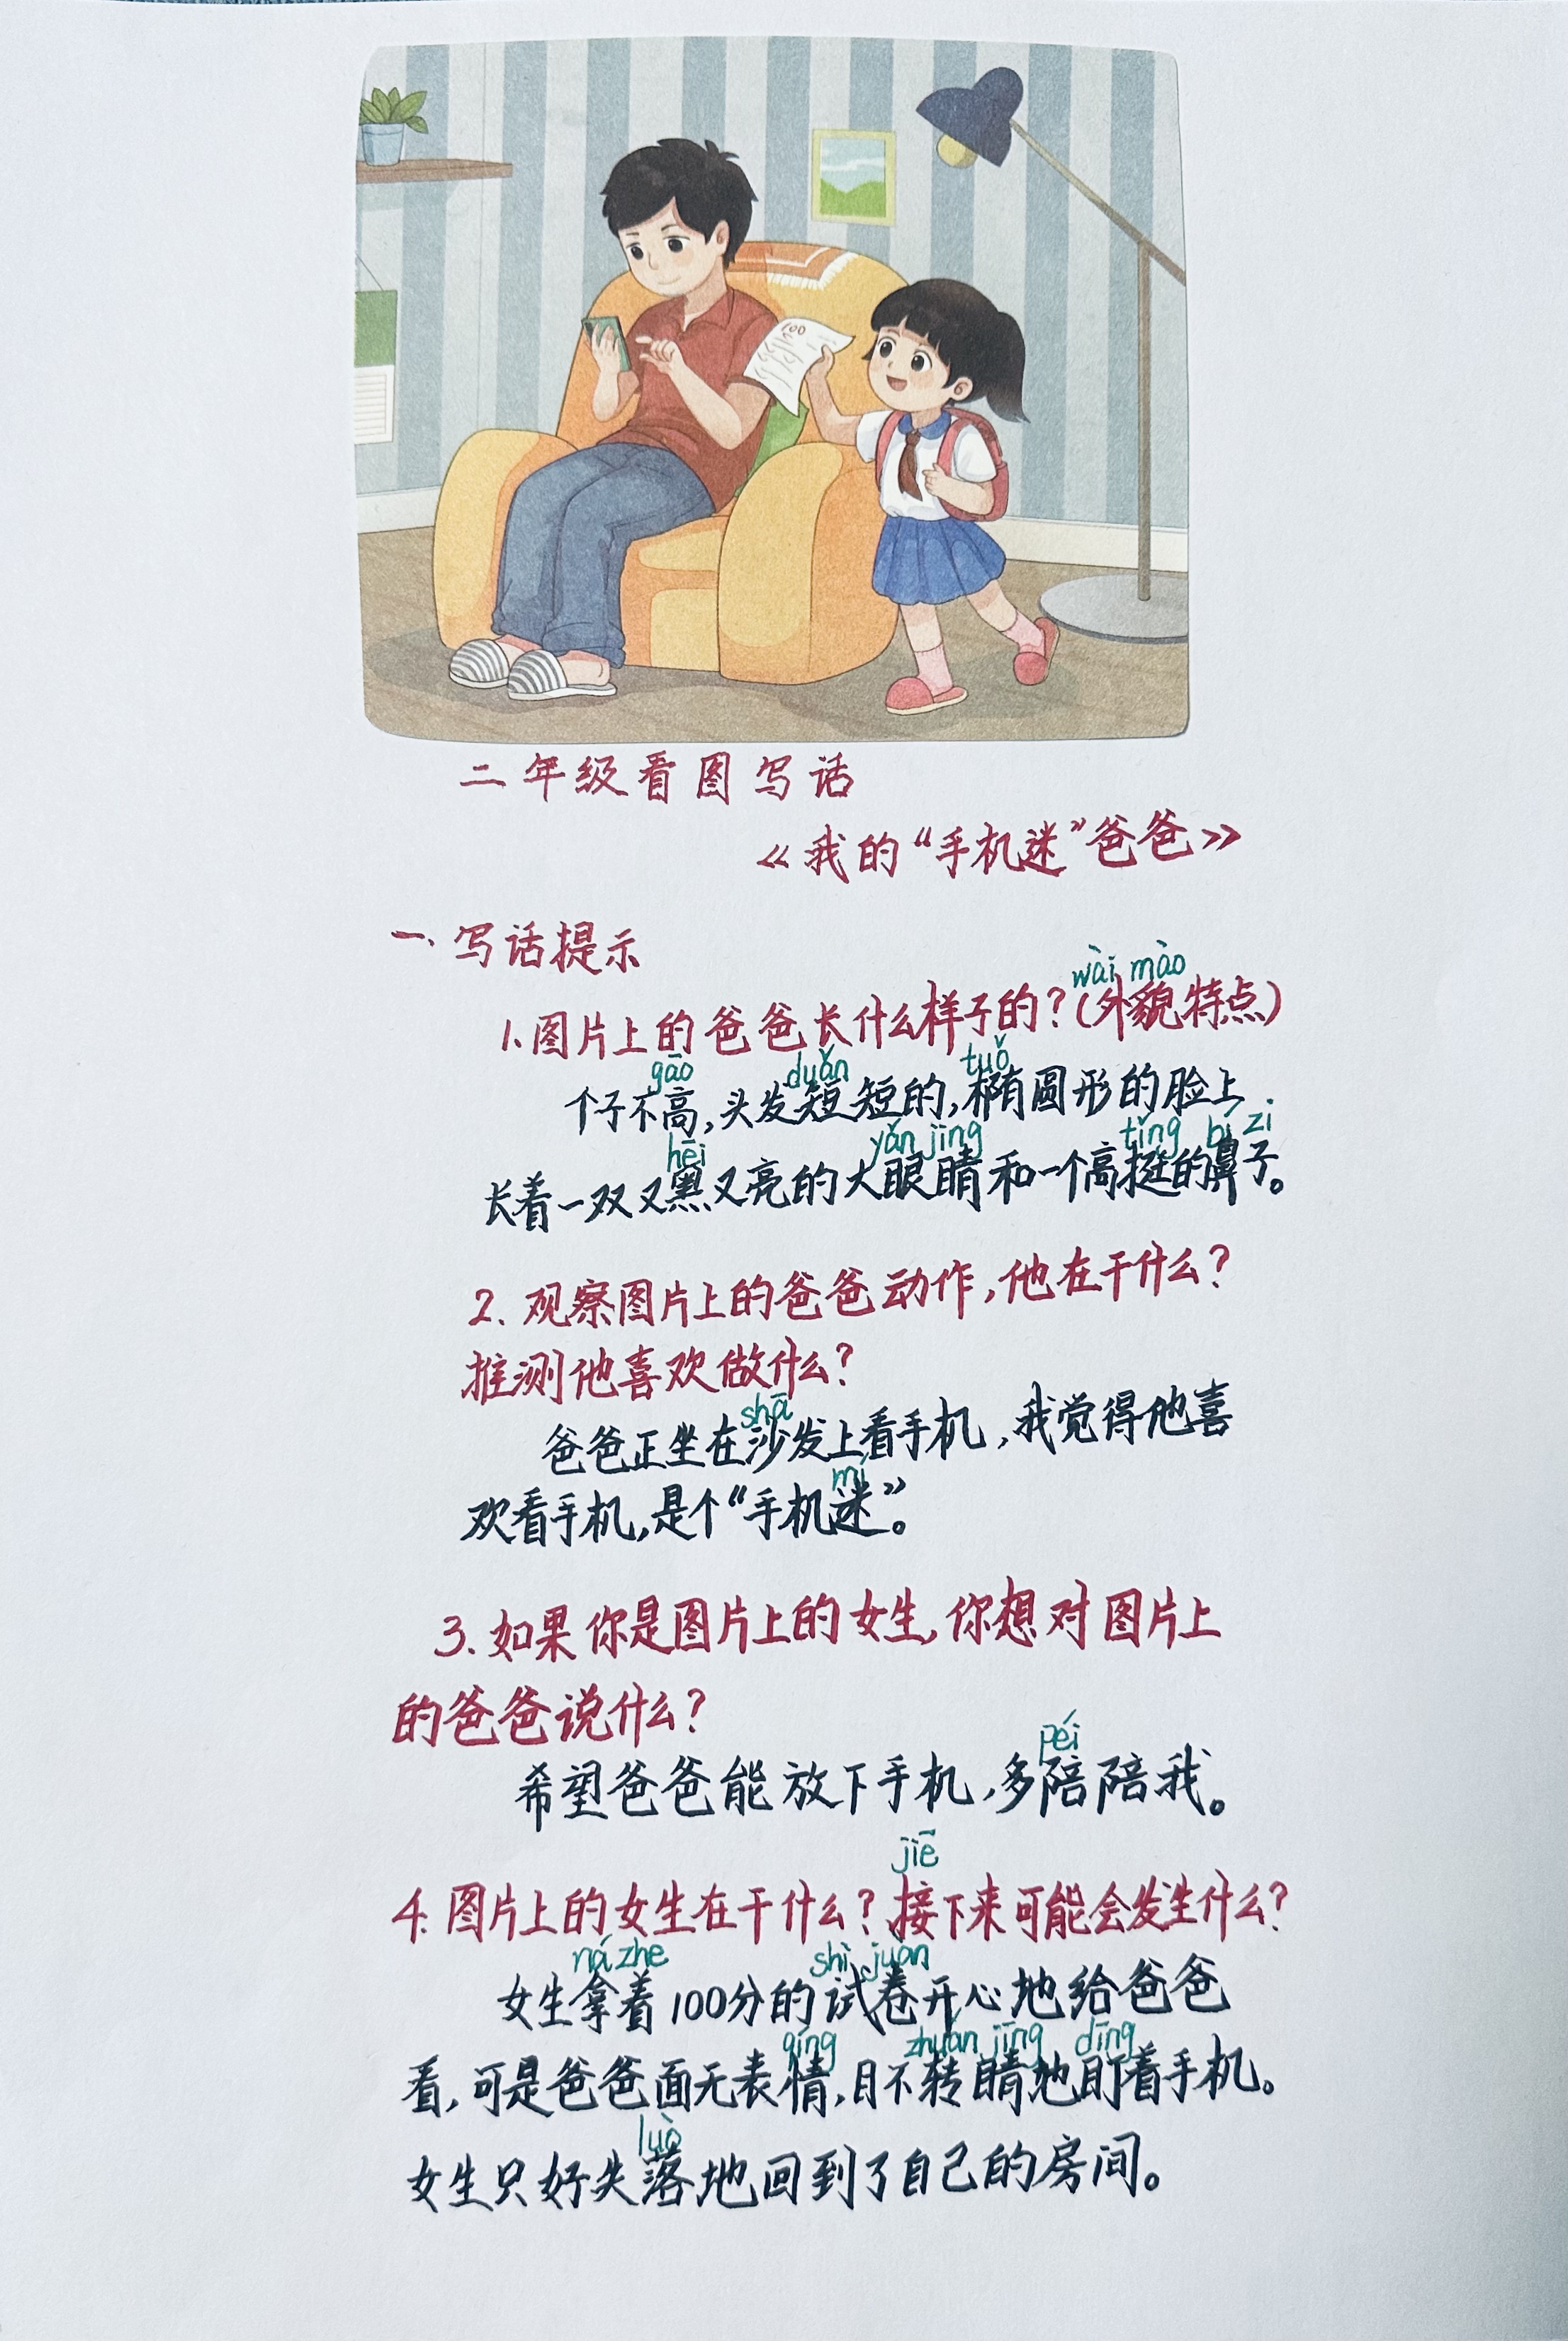 100
二年级看图写话
《我的“手机迷”爸爸》
一、写话提示
wài mào
1.图片上的爸爸长什么样子的?(外貌特点)
gāo duǎn tuǒ
个子不高,头发短短的,椭圆形的脸上
hēi yǎn jīng tǐng bí zi
长着一双又黑又亮的大眼睛和一个高挺的鼻子。
2.观察图片上的爸爸动作,他在干什么?
推测他喜欢做什么?
shā
爸爸正坐在沙发上看手机,我觉得他喜
mí
欢看手机,是个“手机迷”。
3.如果你是图片上的女生,你想对图片上
的爸爸说什么?
péi
希望爸爸能放下手机,多陪陪我。
jiē
4.图片上的女生在干什么?接下来可能会发生什么?
ná zhe shì juàn
女生拿着100分的试卷开心地给爸爸
qíng zhuǎn jīng dīng
看,可是爸爸面无表情,目不转睛地盯着手机。
luò
女生只好失落地回到了自己的房间。